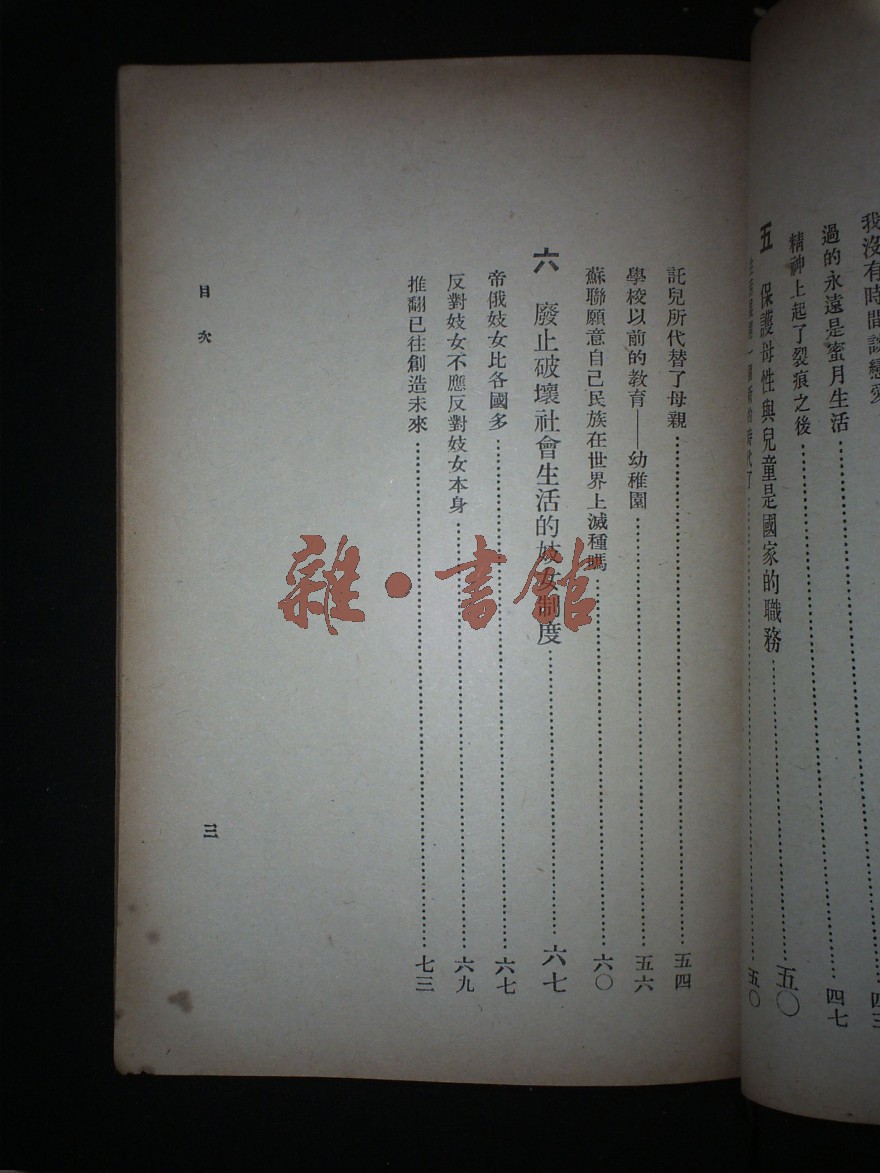 我沒有時間談戀愛……四三
過的永遠是蜜月生活……四七
精神上起了裂痕之後
五 保護母性與兒童是國家的職務……五〇
五〇
託兒所代替了母親……五四
學校以前的教育——幼稚園……五六
蘇聯願意自己民族在世界上滅種嗎……六〇
六 廢止破壞社會生活的妓女制度……六七
帝俄妓女比各國多……六七
反對妓女不應反對妓女本身……六九
推翻已往創造未來……七三
目次
三
雜·書館